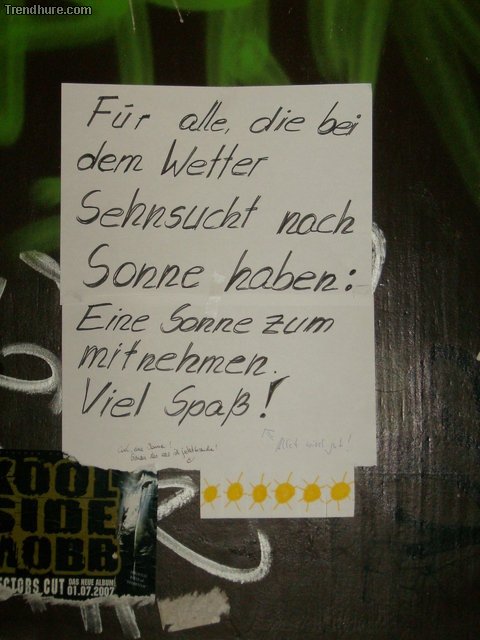 Trendhure.com
Für alle, die bei
dem Wetter
Sehnsucht nach
Sonne haben:
Eine Sonne zum
mitnehmen.
Viel Spaß!
KOOL
SIDE
MOBB
ECTORS CUT DAS NEUE ALBUM
01.07.2007